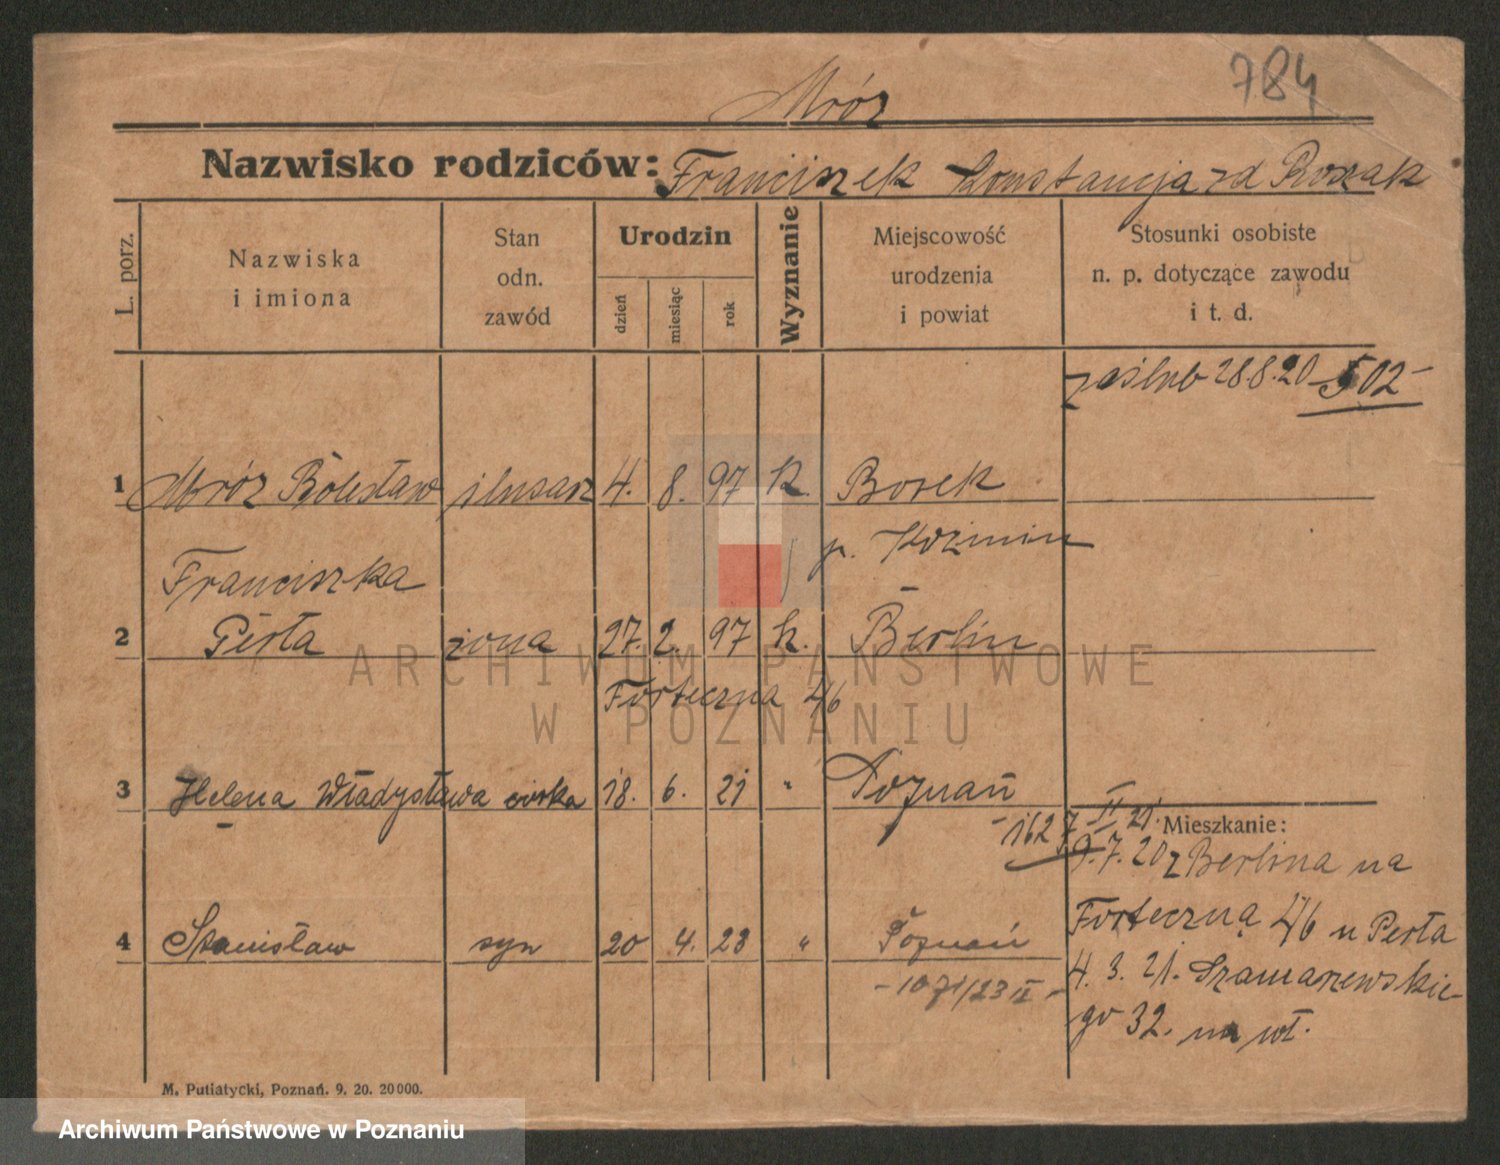 784
Mróz
Nazwisko rodziców: Franciszek Konstancja zd Roszak
L. porz.
Nazwiska i imiona
Stan odn. zawód
Urodzin
dzień
miesiąc
rok
Wyznanie
Miejscowość urodzenia i powiat
Stosunki osobiste n. p. dotyczące zawodu i t. d.
zaślub 28.8.20 - 502 -
1 Mróz Bolesław ślusarz 4. 8. 97 k. Borek
p. Koźmin
Franciszka
2 Perła żona 27. 2. 97 k. Berlin
Forteczna 46
3 Helena Władysława córka 18. 6. 21 " Poznań
- 1627 II 21.
Mieszkanie:
9.7.20 z Berlina na
Forteczną 46 u Perła
4 Stanisław syn 20 4. 23 " Poznań
- 1071/23 II -
4. 3. 21. Szamarzewskie-
go 32. na wł.
M. Putiatycki, Poznań. 9. 20. 20000.
ARCHIWUM PAŃSTWOWE
W POZNANIU
Archiwum Państwowe w Poznaniu